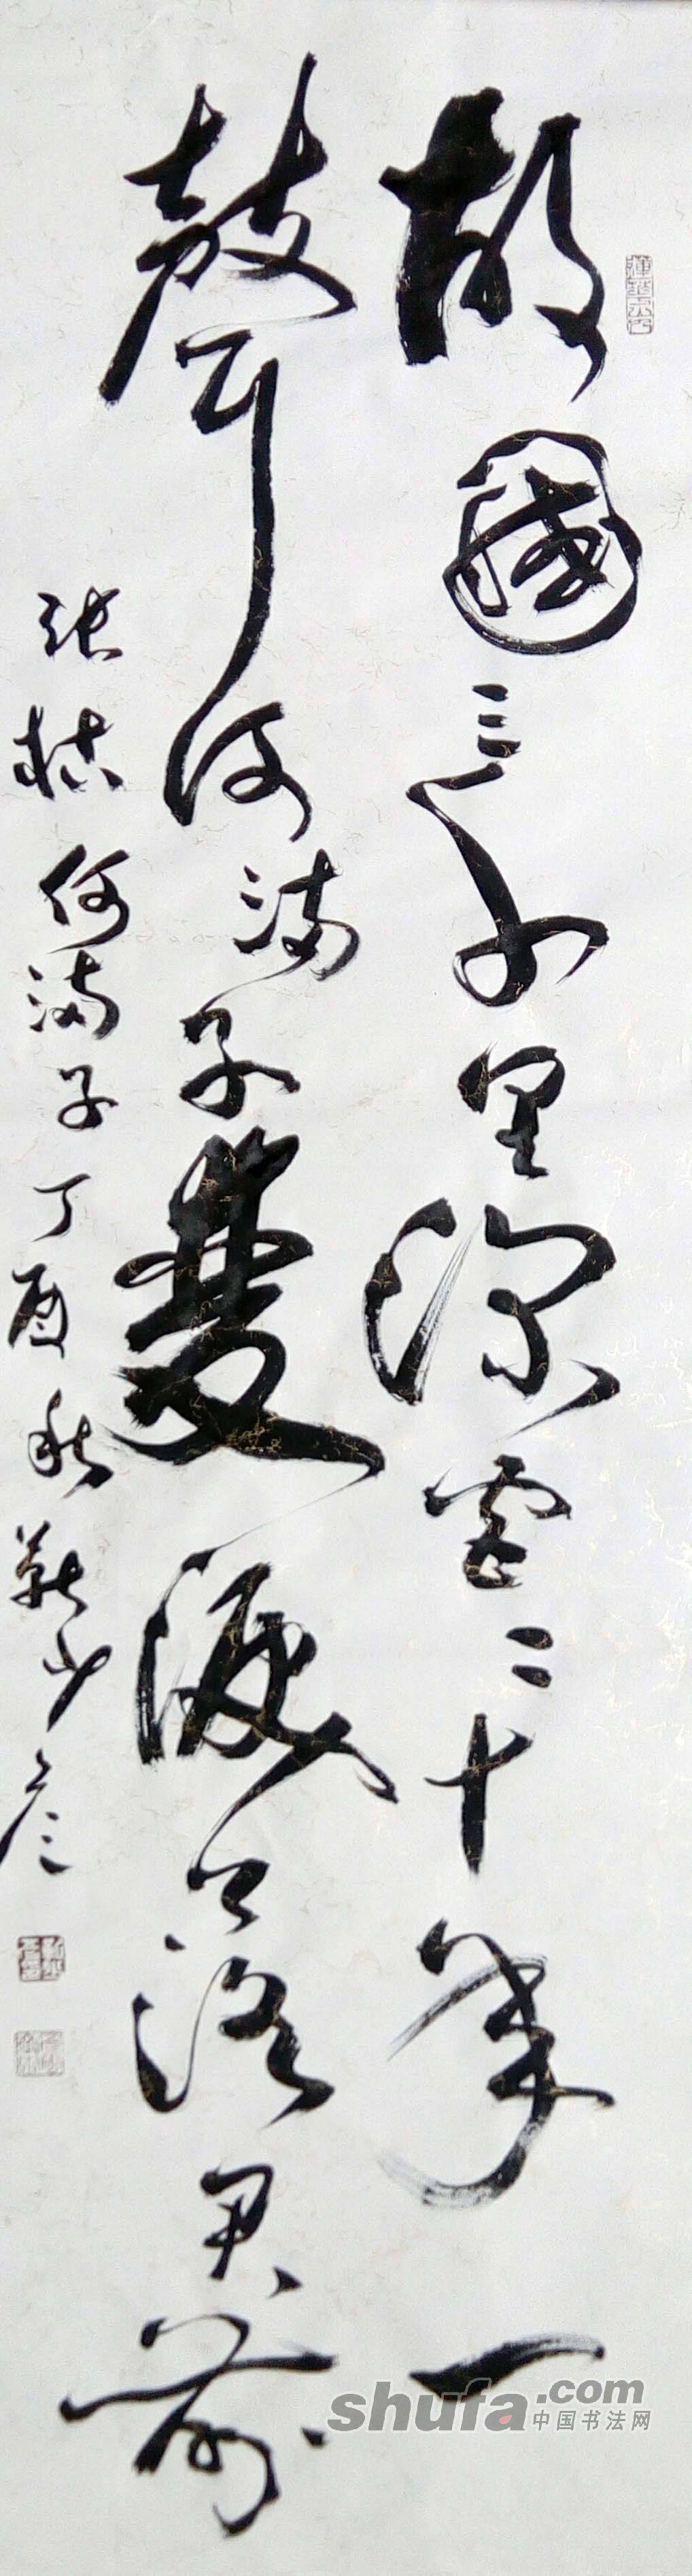 故國三千里深宫二十年一
聲何滿子雙淚落君前
张祜何满子丁酉秋靳少彦
shufa.com
中国书法网